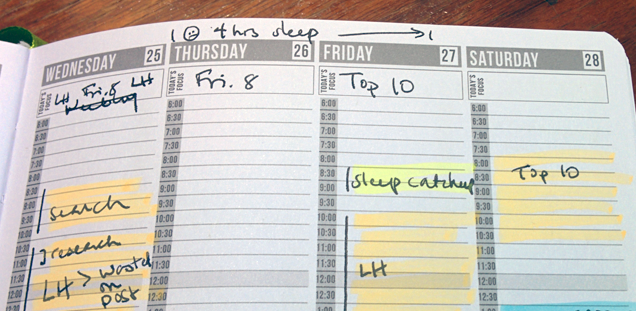 4 hrs sleep
WEDNESDAY 25
TODAY'S FOCUS
LH Fri. 8 LH
8:00
6:30
7:00
7:30
8:00
8:30
9:00
9:30
10:00
10:30
11:00
11:30
12:00
12:30
search
research
LH >
on
post
THURSDAY 26
TODAY'S FOCUS
Fri. 8
6:00
6:30
7:00
7:30
8:00
8:30
9:00
9:30
10:00
10:30
11:00
11:30
12:00
12:30
FRIDAY 27
TODAY'S FOCUS
Top 10
6:00
6:30
7:00
7:30
8:00
8:30
9:00
9:30
10:00
10:30
11:00
11:30
12:00
12:30
sleep catchup
LH
SATURDAY 28
TODAY'S FOCUS
6:00
6:30
7:00
7:30
8:00
8:30
9:00
9:30
10:00
10:30
11:00
11:30
12:00
12:30
Top 10